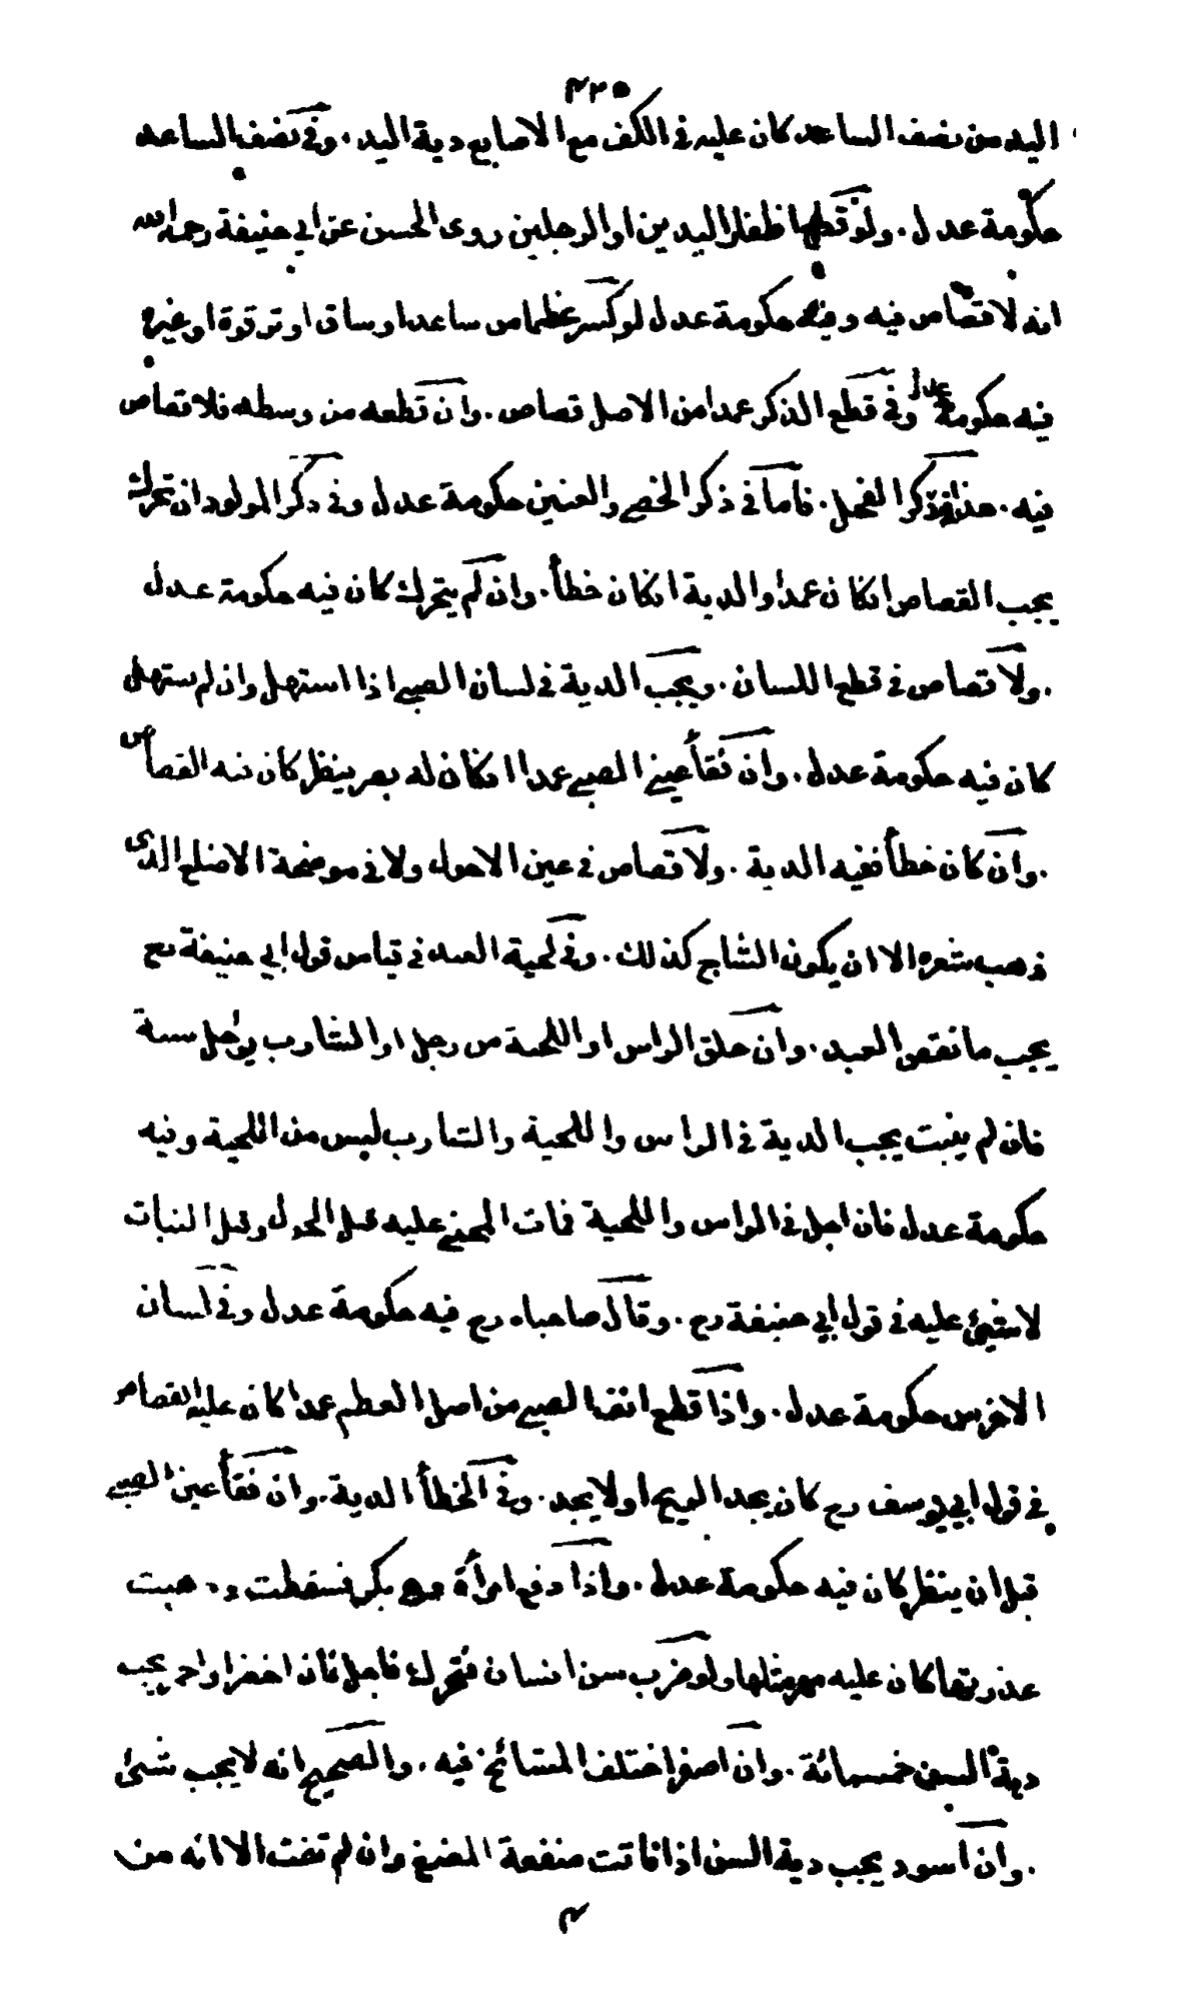 ٤٢٥
اليد من نصف الساعد كان عليه في الكف مع الاصابع دية اليد . وفي نصف الساعد
حكومة عدل . ولو قطع اظفار اليدين او الرجلين روى الحسن عن ابي حنيفة رحمه الله
انه لا قصاص فيه وفيه حكومة عدل لو كسر عظما من ساعد او ساق او ترقوة او غيره
فيه حكومة عدل وفي قطع الذكر عمدا من الاصل قصاص . وان قطعه من وسطه فلا قصاص
فيه . هذا في ذكر الفحل . فاما في ذكر الخصي والعنين حكومة عدل وفي ذكر المولود ان تحرك
يجب القصاص انكان عمدا والدية انكان خطأ . وان لم يتحرك كان فيه حكومة عدل
. ولا قصاص في قطع اللسان . ويجب الدية في لسان الصبي اذا استهل وان لم يستهل
كان فيه حكومة عدل . وان فقأ عيني الصبي عمدا انكان له بصر ينظر كان فيه القصاص
. وان كان خطأ ففيه الدية . ولا قصاص في عين الاحول ولا في موضحة الاصلع الذي
ذهب شعره الا ان يكون الشاج كذلك . وفي لحية العبد في قياس قول ابي حنيفة رح
يجب ما نقص العبد . وان حلق الراس او اللحية من رجل او الشارب يؤجل سنة
فان لم ينبت يجب الدية في الراس واللحية والشارب ليس من اللحية وفيه
حكومة عدل فان اجل في الراس واللحية فمات المجني عليه قبل الحول وقبل النبات
لا شيئ عليه في قول ابي حنيفة رح . وقال صاحباه رح فيه حكومة عدل وفي لسان
الاخرس حكومة عدل . واذا قطع انف الصبي من اصل العظم عمدا كان عليه القصاص
في قول ابي يوسف رح كان يجد الريح او لا يجد . وفي الخطأ الدية . وان فقأ عين الصبي
قبل ان ينظر كان فيه حكومة عدل . واذا دفع امرأة وهي بكر فسقطت وذهبت
عذرتها كان عليه مهر مثلها ولو ضرب سن انسان فتحرك فاجل فان اخضر او احمر يجب
دية السن خمسمائة . وان اصفر اختلف المشائخ فيه . والصحيح انه لا يجب شئ
. وان اسود يجب دية السن اذا فاتت منفعة المضغ وان لم تفت الا انه من